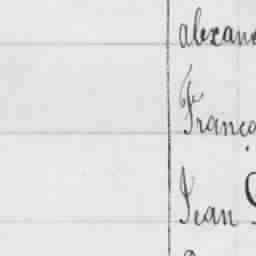 alexand
Franço
Jean